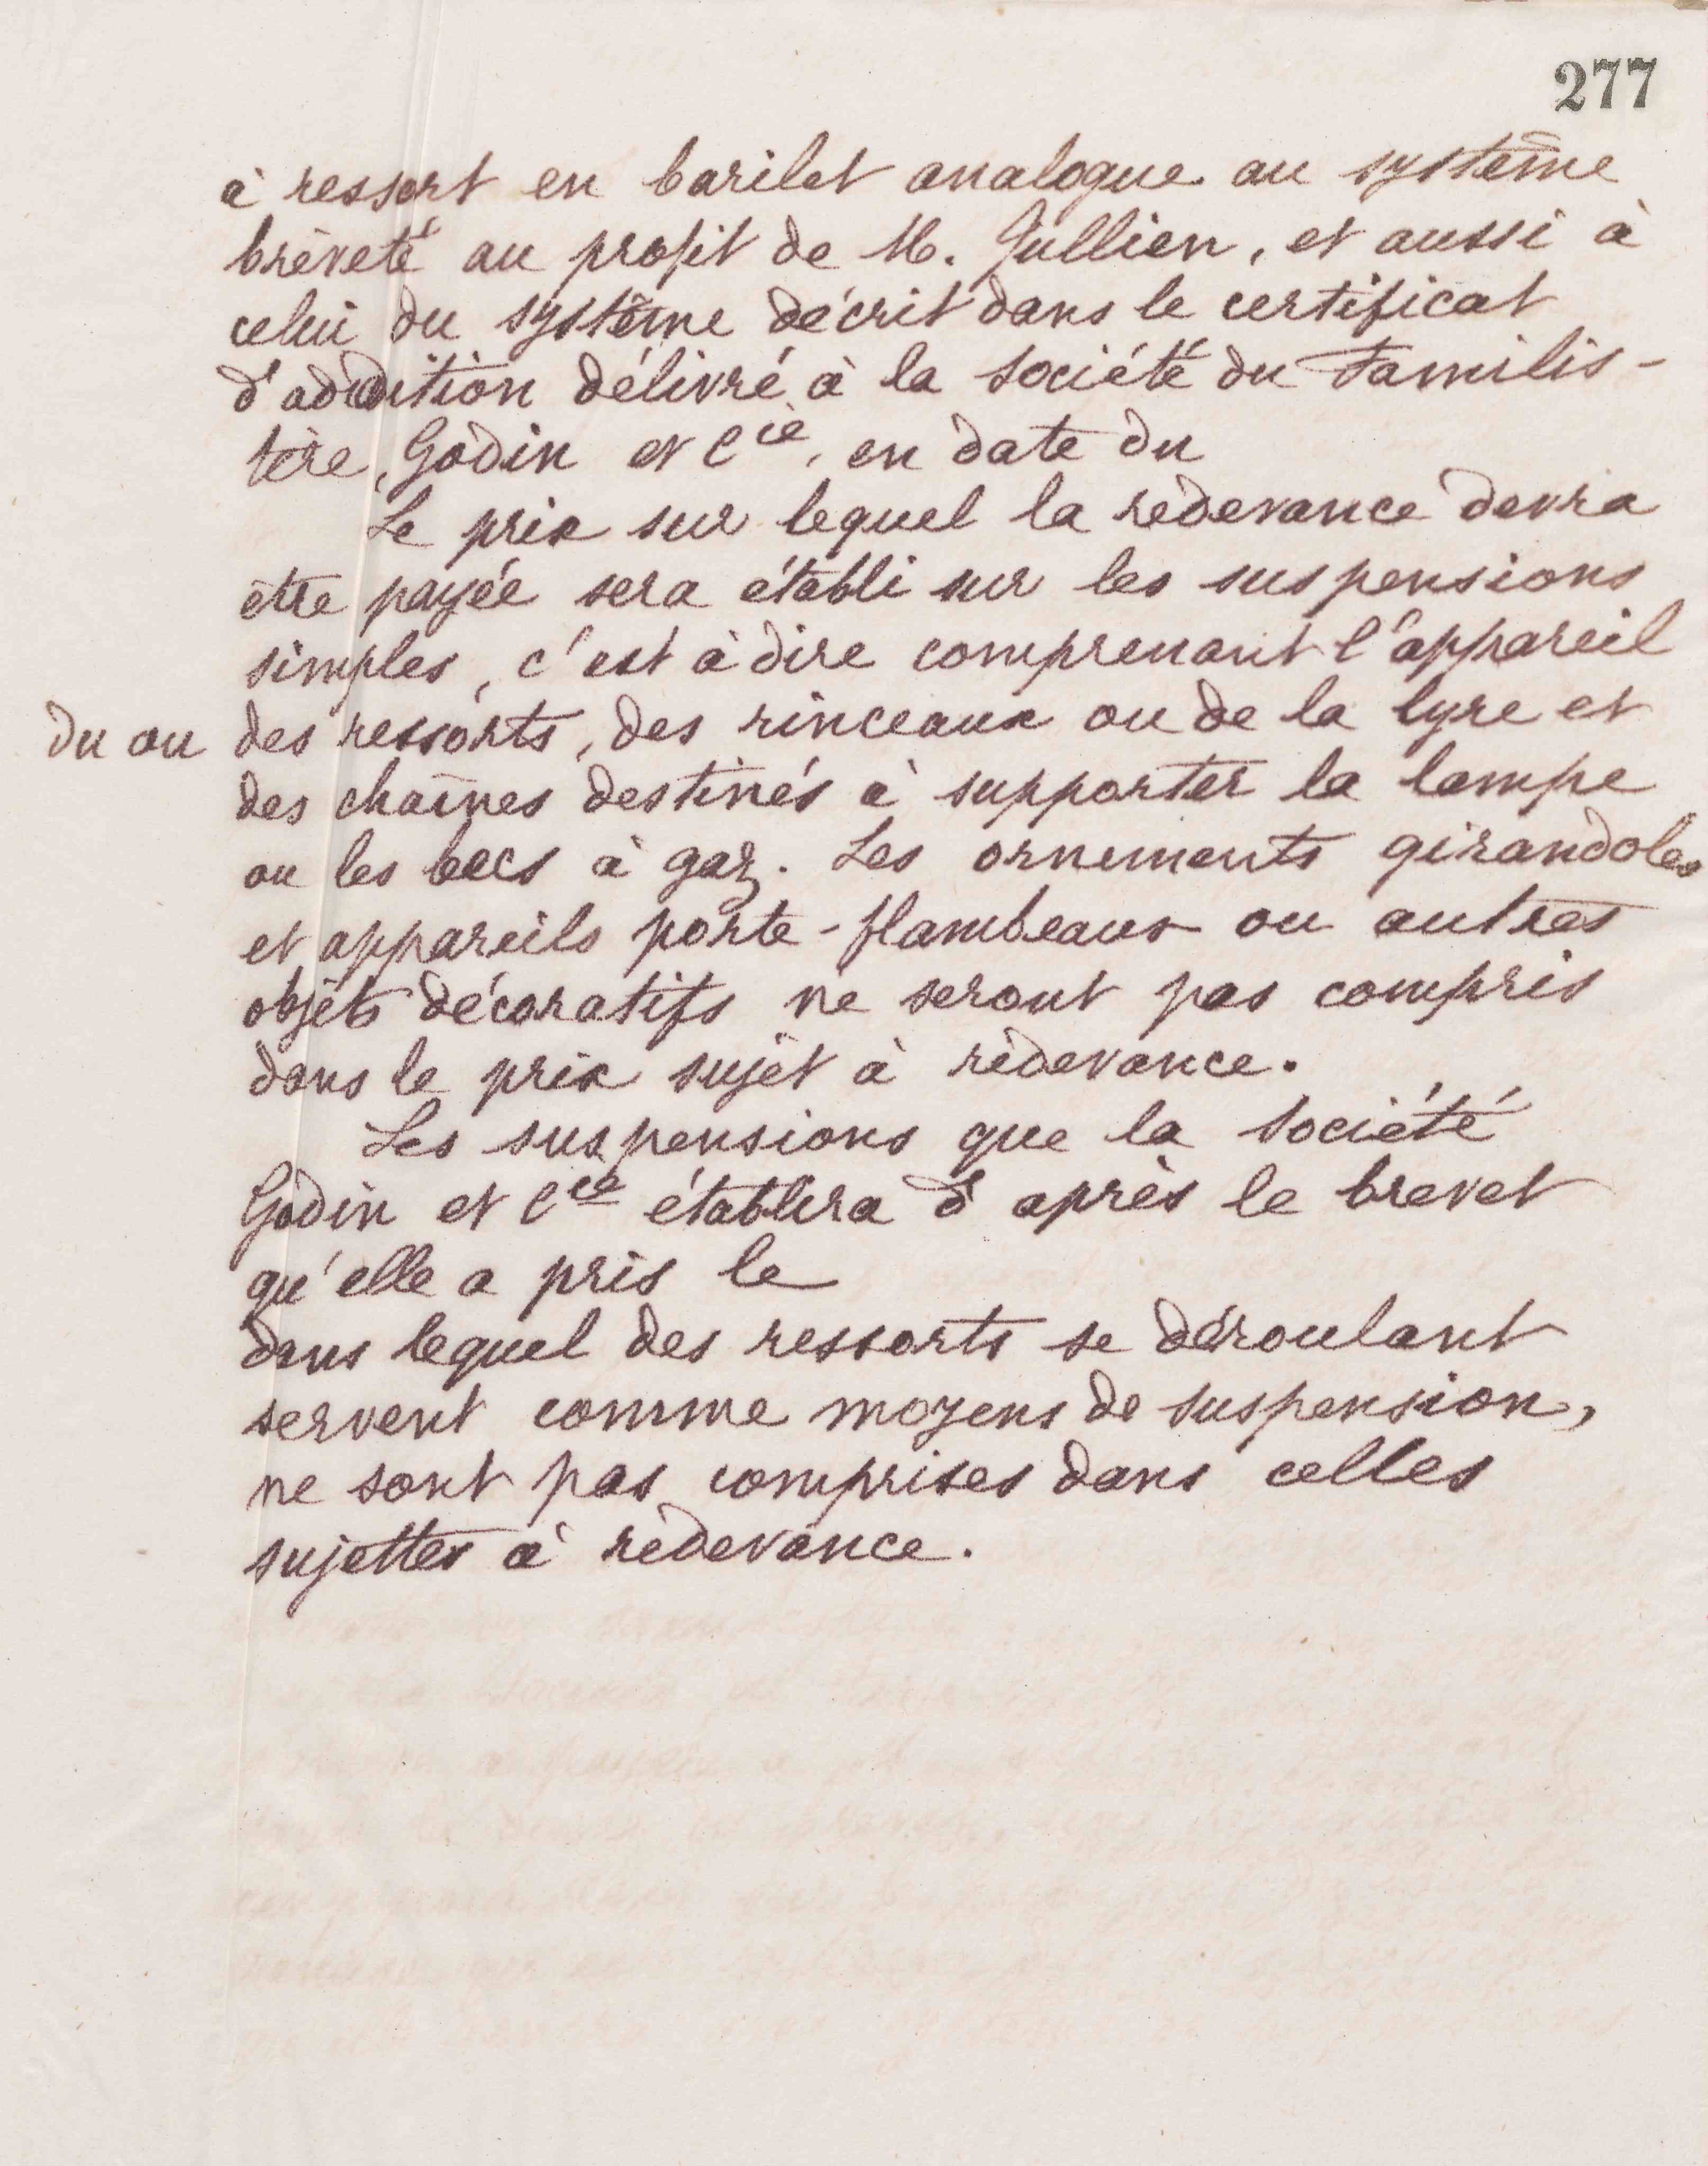 277
à ressort en barilet analogue au système
breveté au profit de M. Jullien, et aussi à
celui du système décrit dans le certificat
d'addition délivré à la Société du Familis-
tère, Godin et Cie, en date du
Le prix sur lequel la redevance devra
être payée sera établi sur les suspensions
simples, c'est à dire comprenant l'appareil
du ou des ressorts, des rinceaux ou de la lyre et
des chaînes destinés à supporter la lampe
ou les becs à gaz. Les ornements girandoles
et appareils porte-flambeaux ou autres
objets décoratifs ne seront pas compris
dans le prix sujet à redevance.
Les suspensions que la Société
Godin et Cie établira d'après le brevet
qu'elle a pris le
dans lequel des ressorts se déroulant
servent comme moyens de suspension,
ne sont pas comprises dans celles
sujettes à redevance.